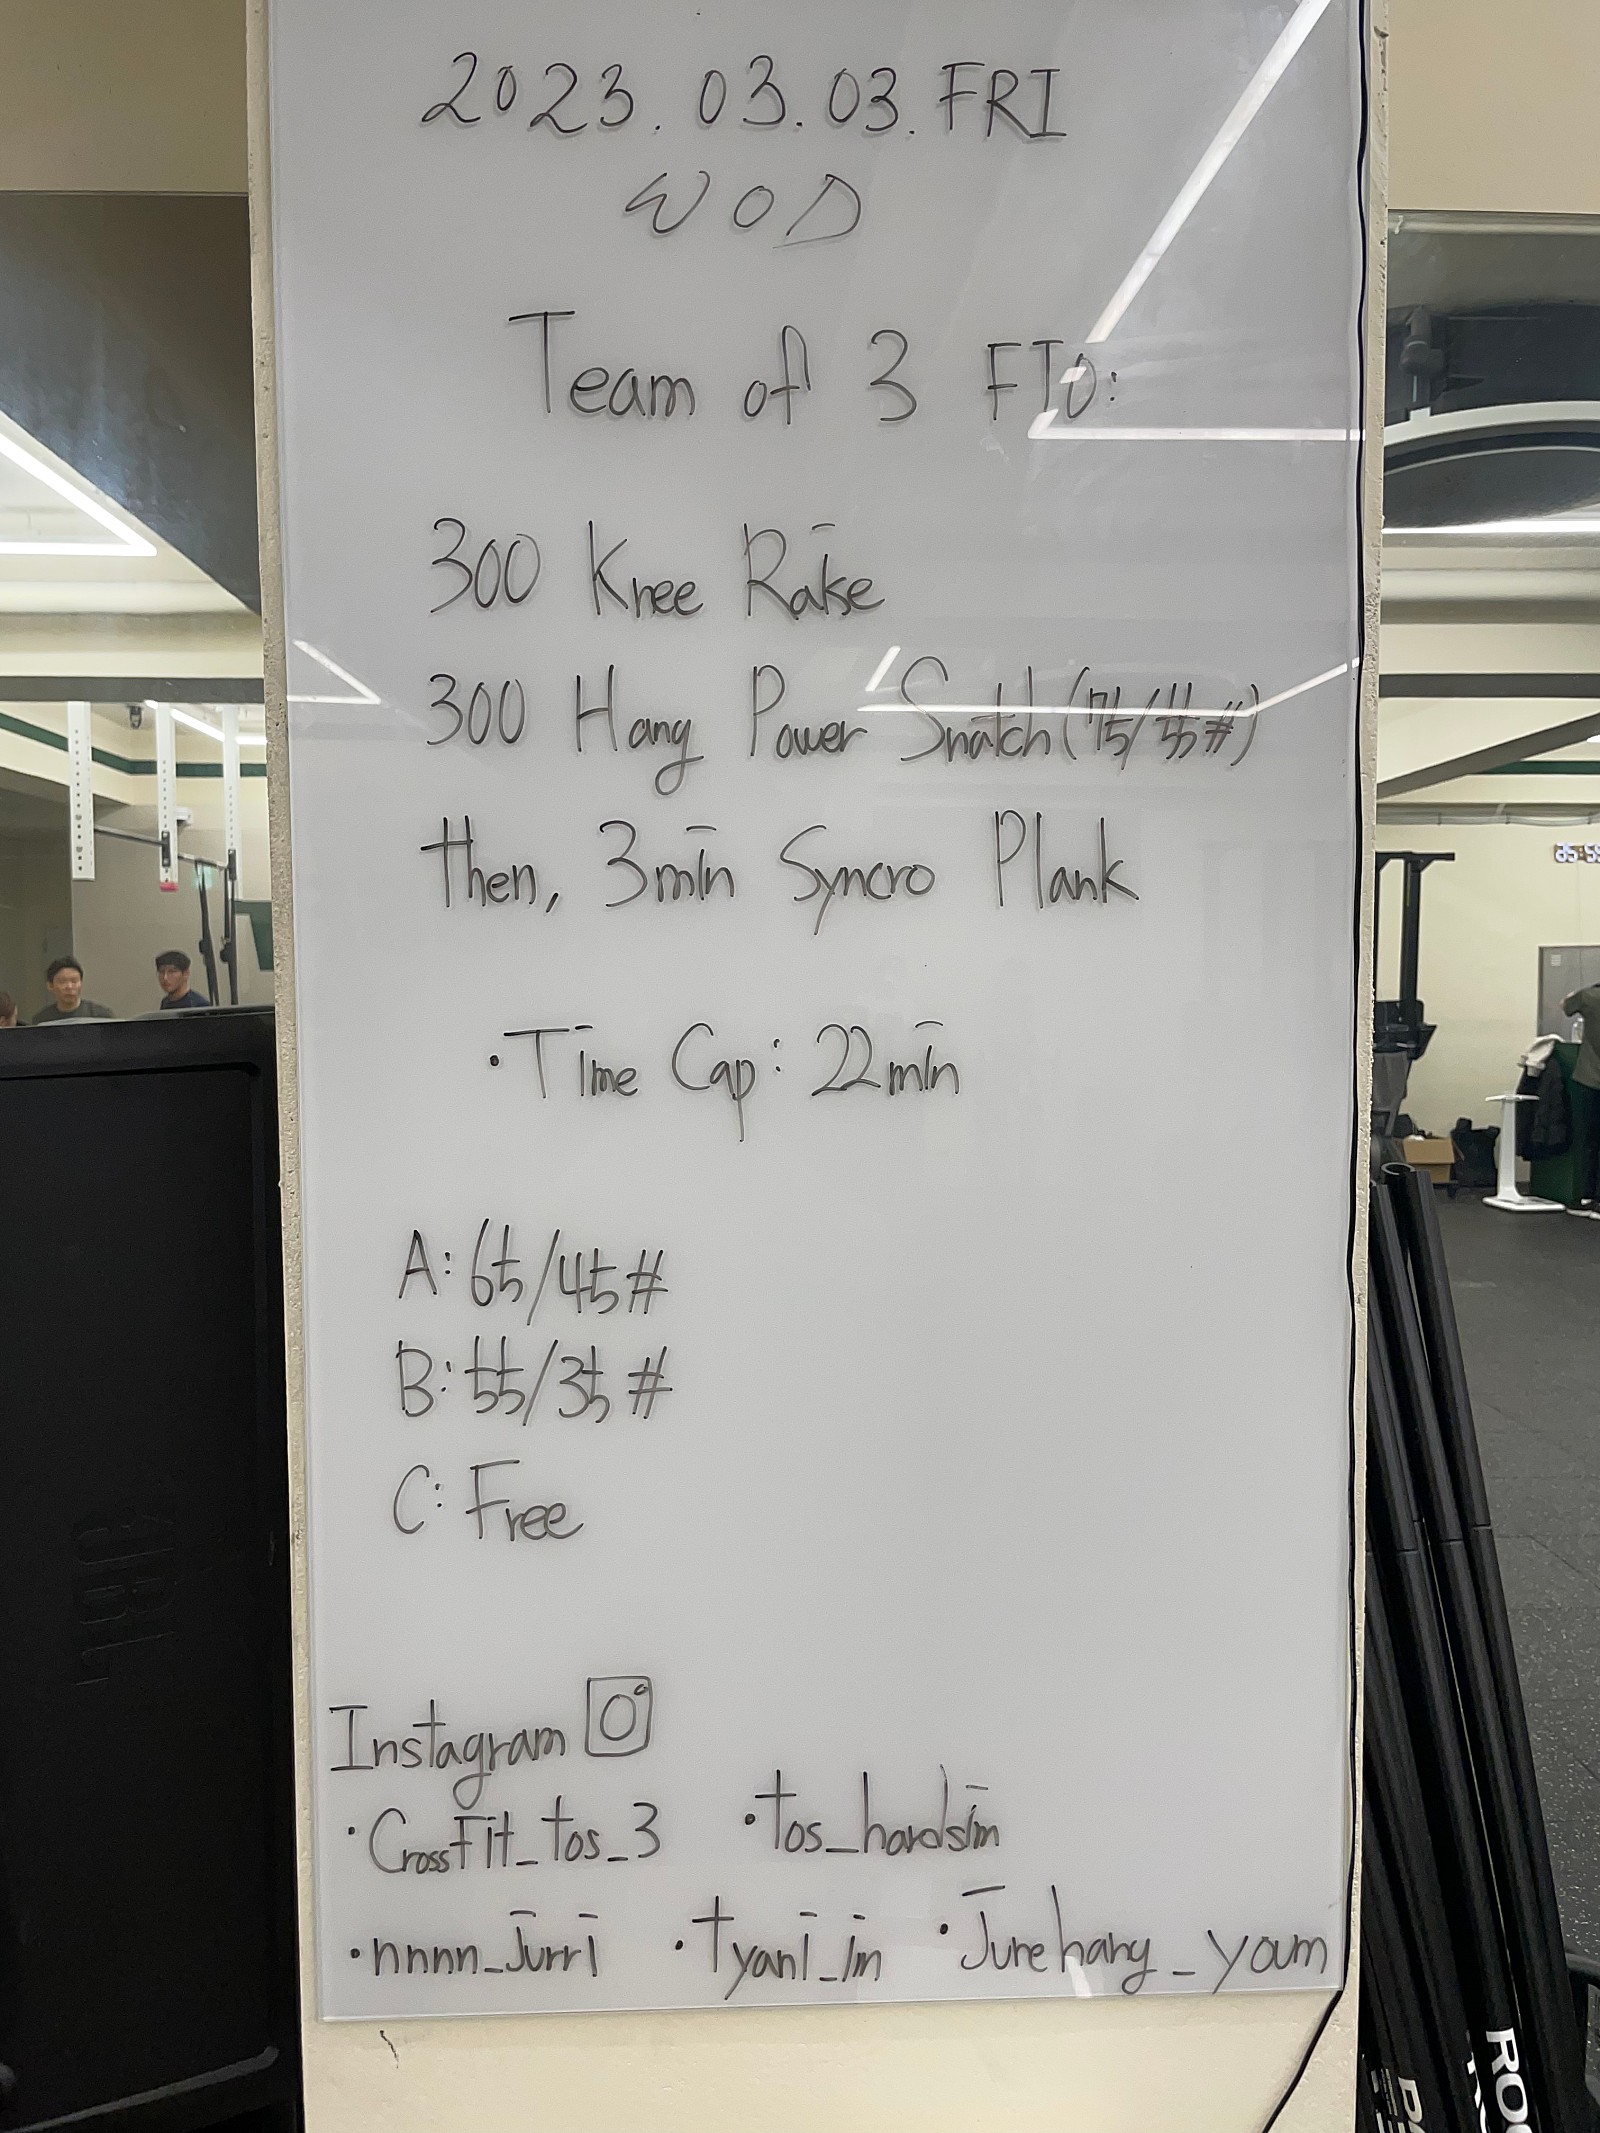 2023.03.03.FRI
WOD
Team of 3 FTO:
300 Knee Raise
300 Hang Power Snatch (75/55#)
then, 3min Syncro Plank
·Time Cap: 22min
A: 65/45#
B: 55/35#
C: Free
Instagram
·CrossFit_tos_3 ·tos_hardsim
·nnnn_Jurri ·tyani_im ·Junehang_youm
JBL